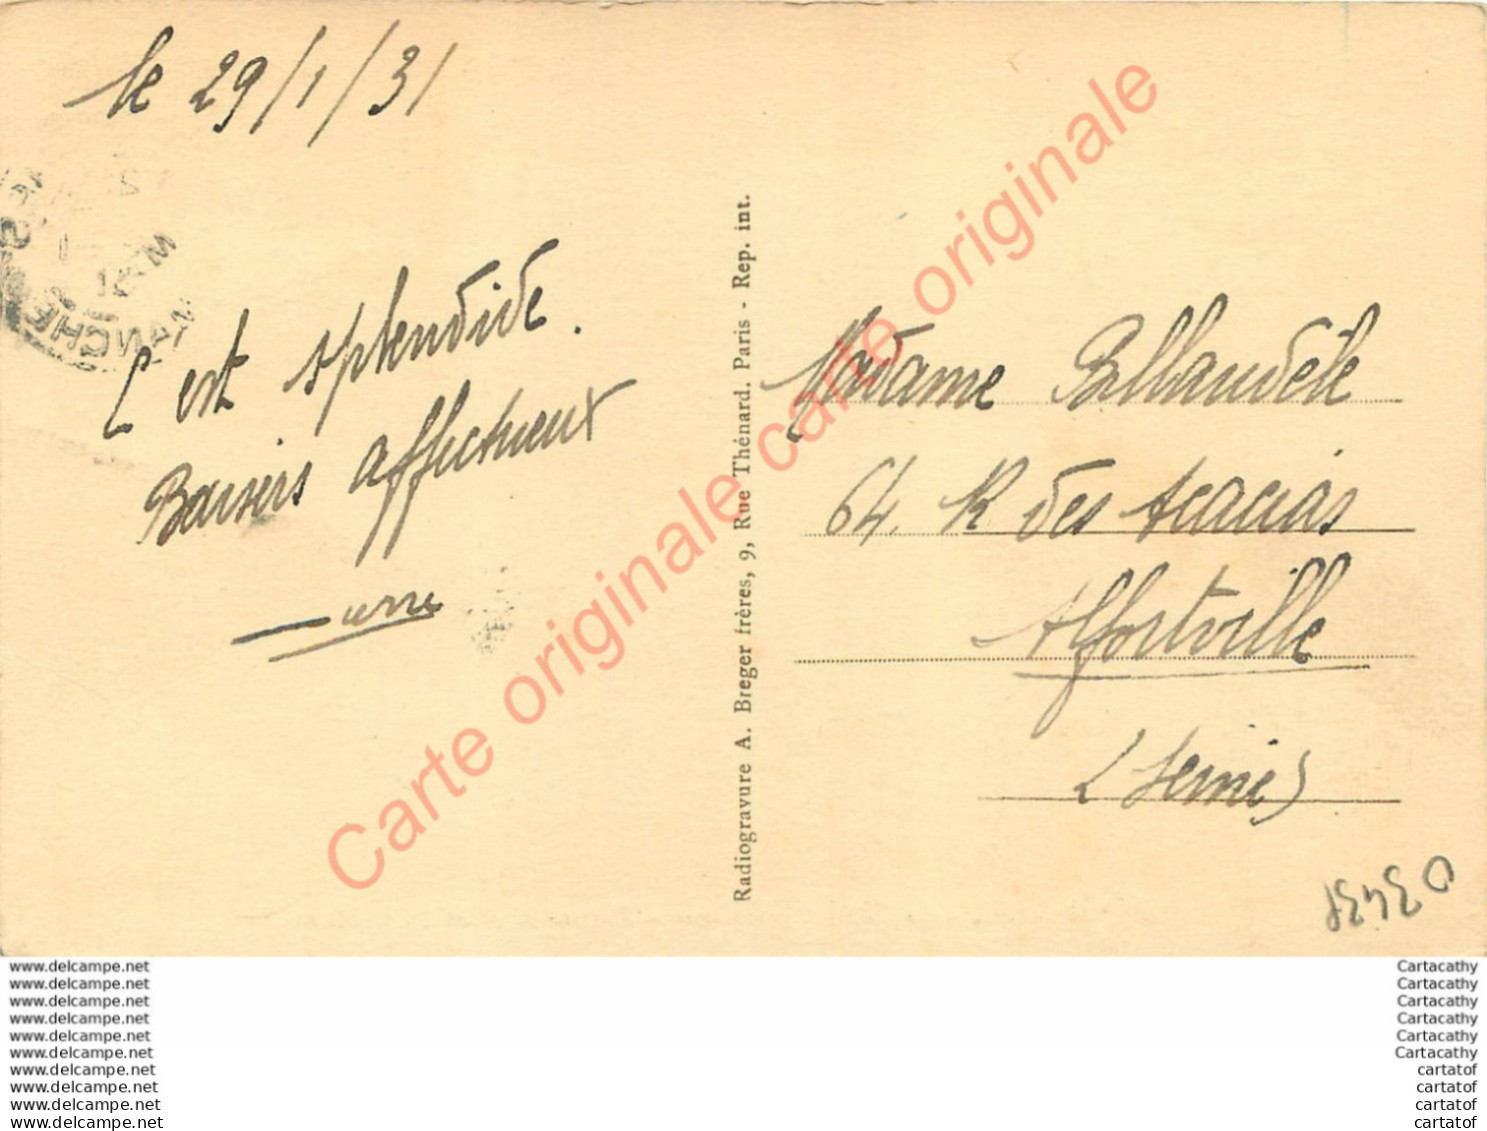 le 29/1/31
C'est splendide.
Baisers affectueux
MANCHE
Radiogravure A. Breger frères, 9, Rue Thénard. Paris - Rep. int.
Madame Billaudèle
64. R des Acacias
Alfortville
(Seine)
Carte originale carte originale
www.delcampe.net
www.delcampe.net
www.delcampe.net
www.delcampe.net
www.delcampe.net
www.delcampe.net
www.delcampe.net
www.delcampe.net
www.delcampe.net
www.delcampe.net
Cartacathy
Cartacathy
Cartacathy
Cartacathy
Cartacathy
Cartacathy
cartatof
cartatof
cartatof
cartatof